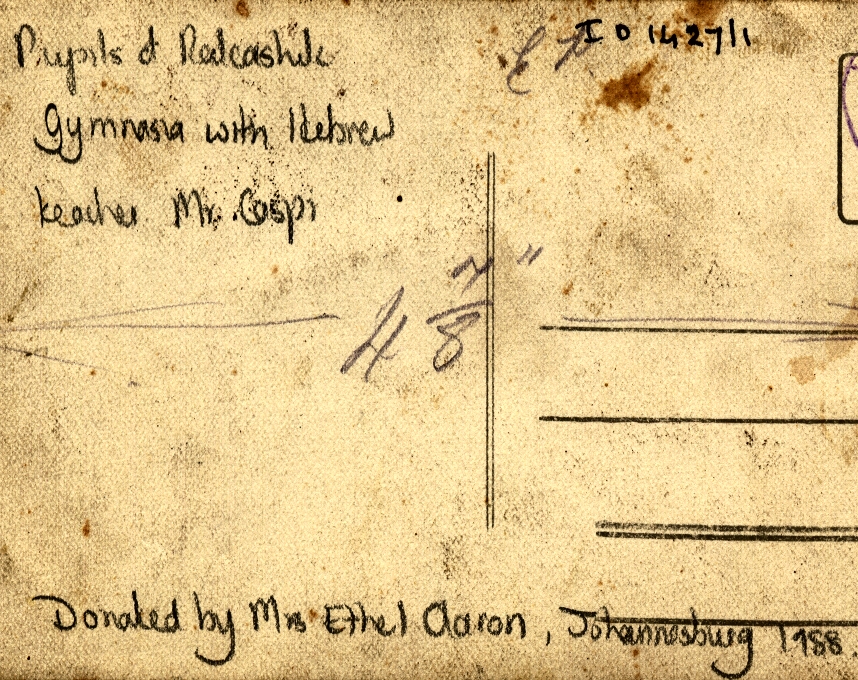 Pupils of
Gymnasia with Hebrew
teacher Mr. Caspi
ID 1427/1
4 7/8"
Donated by Mrs Ethel Aaron, Johannesburg 1988.